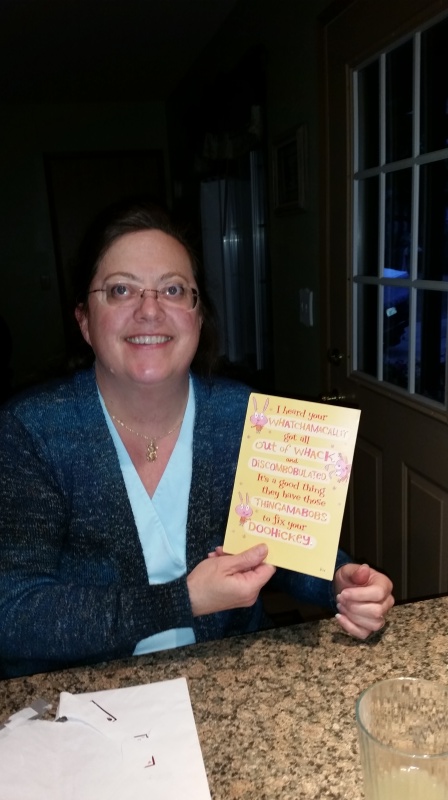 I heard your
WHATCHAMACALLIT
got all
out of WHACK
and
DISCOMBOBULATED.
It's a good thing
they have those
THINGAMABOBS
to fix your
DOOHICKEY.